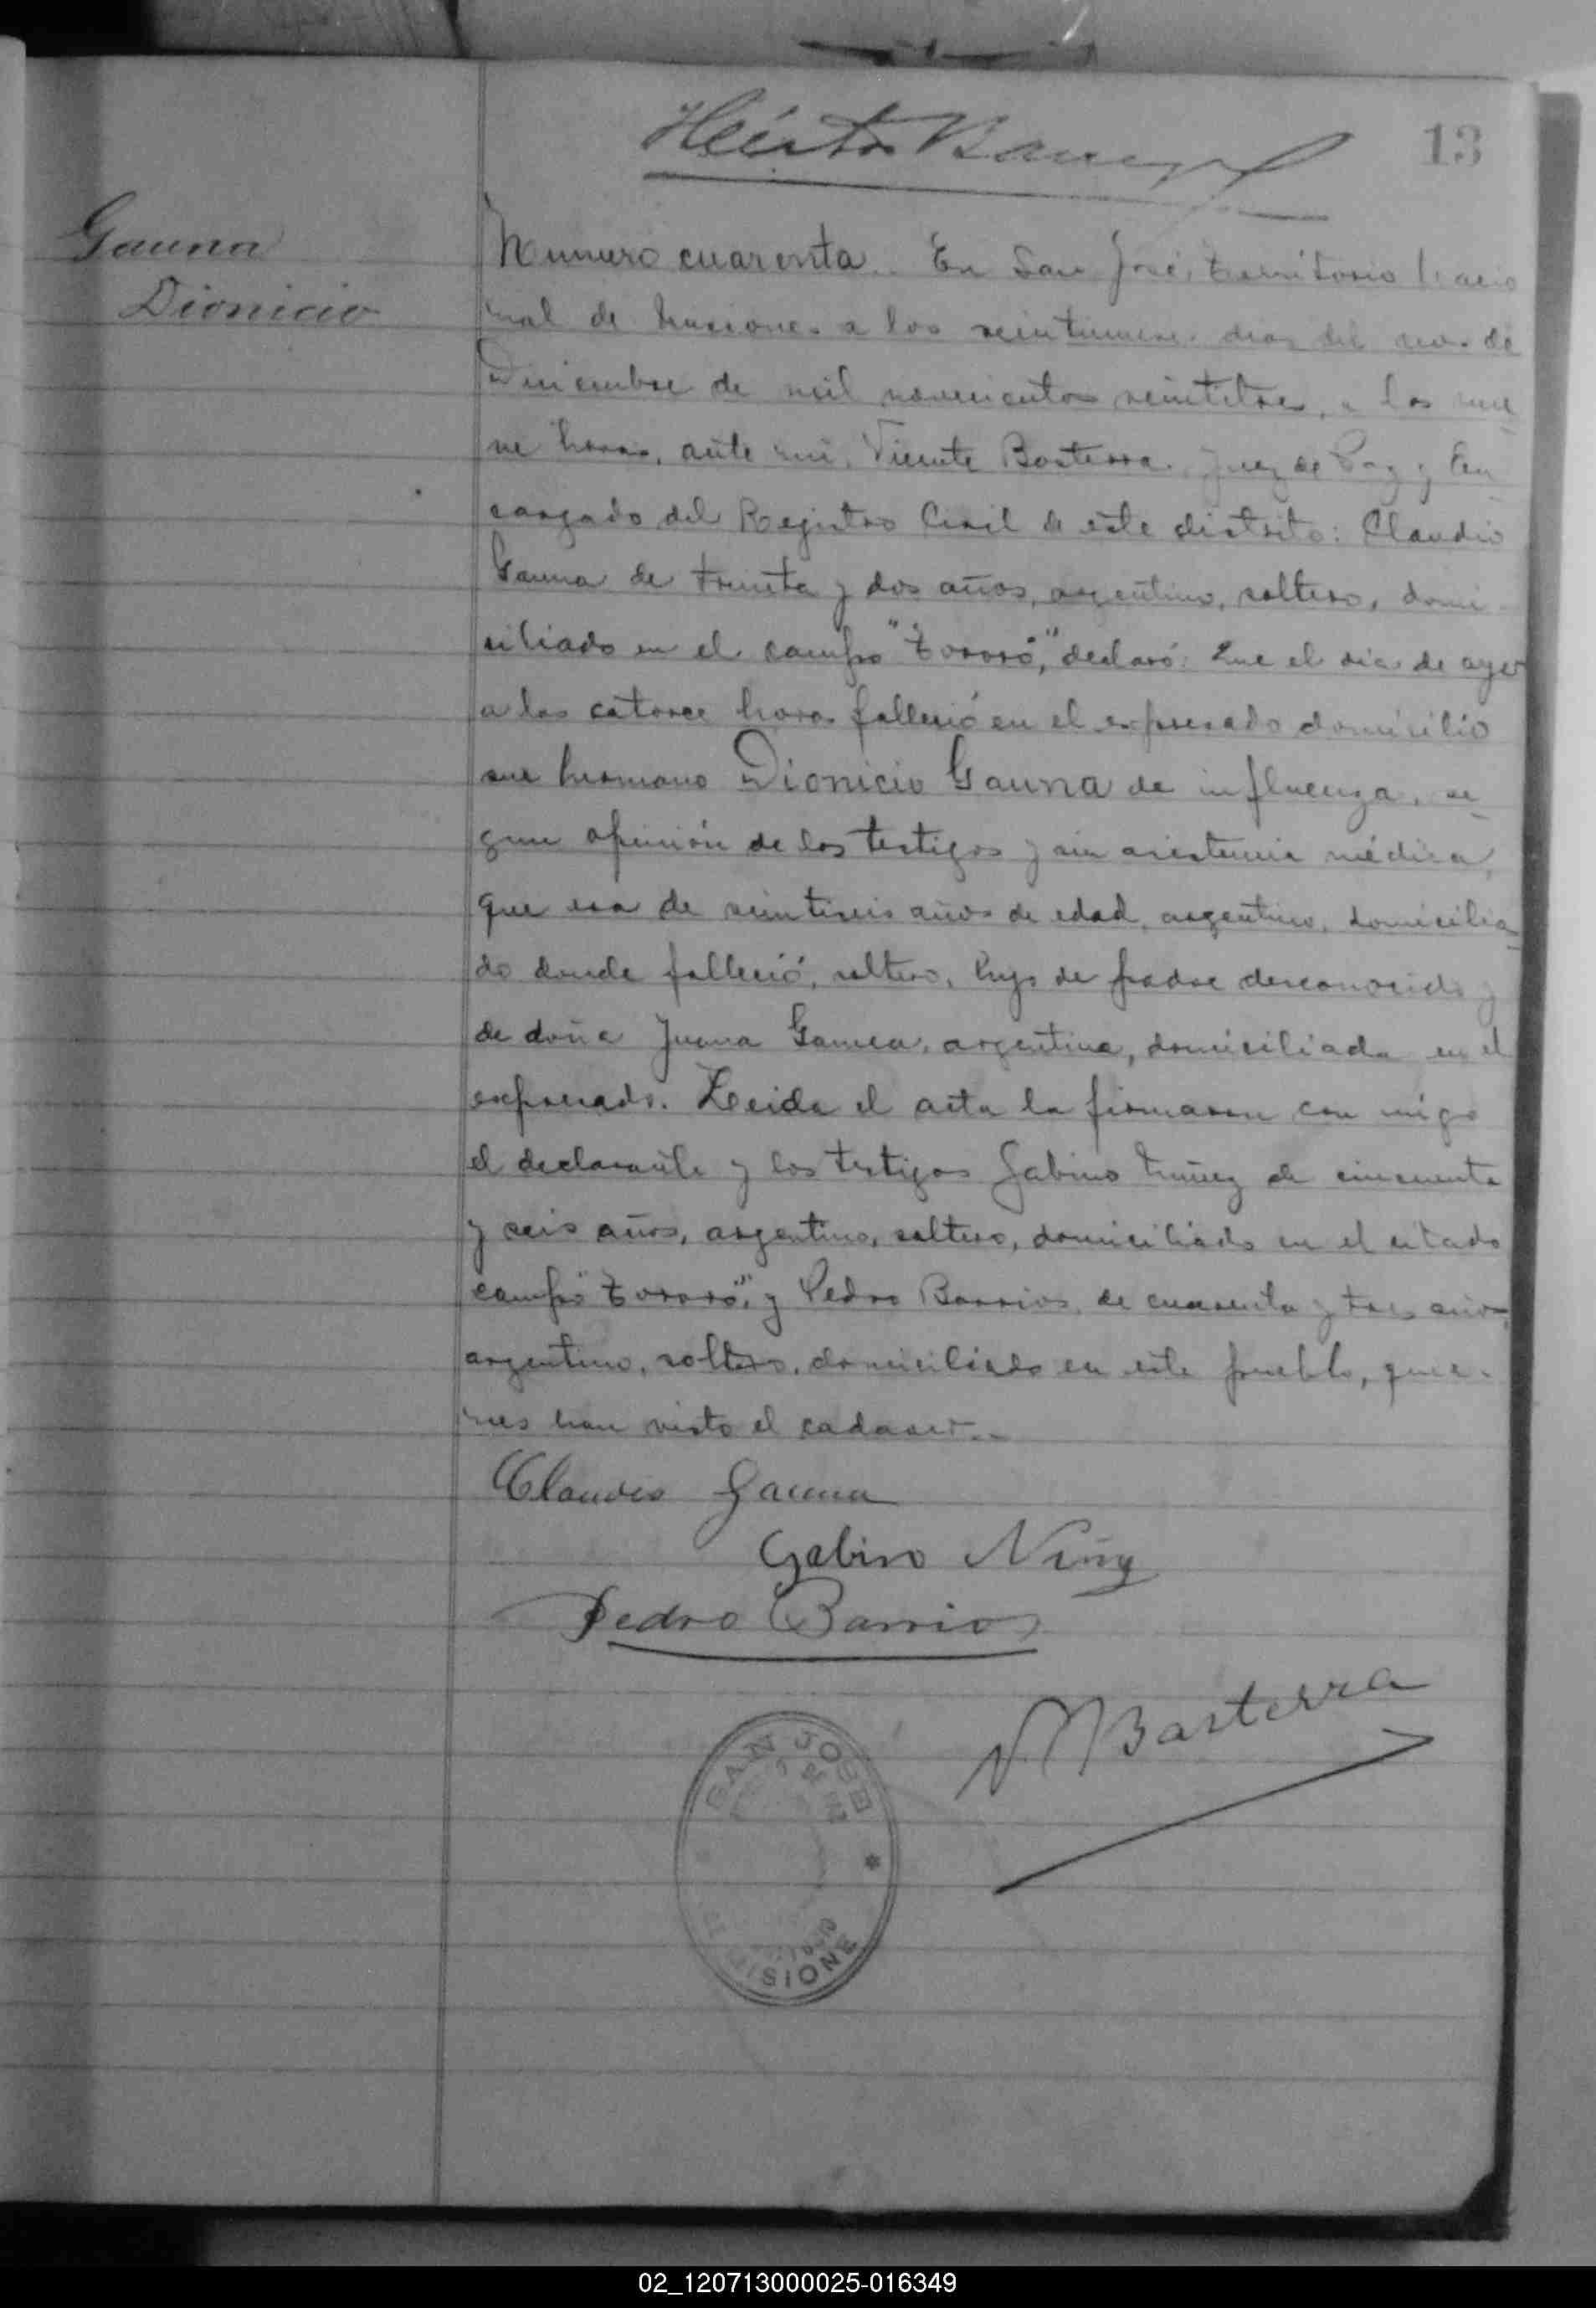 13
Gauna
Dionicio
Numero cuarenta. En San José, Territorio Nacio
nal de Misiones a los veintinueve dias del mes de
Diciembre de mil novecientos veintitres, a las nue
ve horas, ante mi, Vicente Basterra. Juez de Paz y En
cargado del Registro Civil de este distrito: Claudio
Gauna de treinta y dos años, argentino, soltero, domi
ciliado en el campo "Tororó", declaró: Que el dia de ayer
a las catorce horas falleció en el expresado domicilio
su hermano Dionicio Gauna de influenza, se
gun opinión de los testigos y sin asistencia médica,
que era de veintiseis años de edad, argentino, domicilia
do donde falleció, soltero, hijo de padre desconocido y
de doña Juana Gauna, argentina, domiciliada en el
expresado. Leida el acta la firmaron con migo
el declarante y los testigos Gabino Nuñez de cincuenta
y seis años, argentino, soltero, domiciliado en el citado
campo "Tororó", y Pedro Barrios, de cuarenta y tres años,
argentino, soltero, domiciliado en este pueblo, quie
nes han visto el cadaver.
Claudio Gauna
Gabino Nuñez
Pedro Barrios
V Basterra
SAN JOSE
MISIONE
02_120713000025-016349